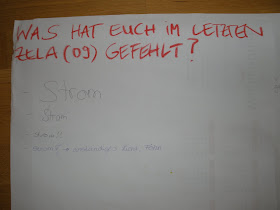 WAS HAT EUCH IM LETZTEN
ZELA (09) GEFEHLT?
- Strom
- Strom
- strom!!